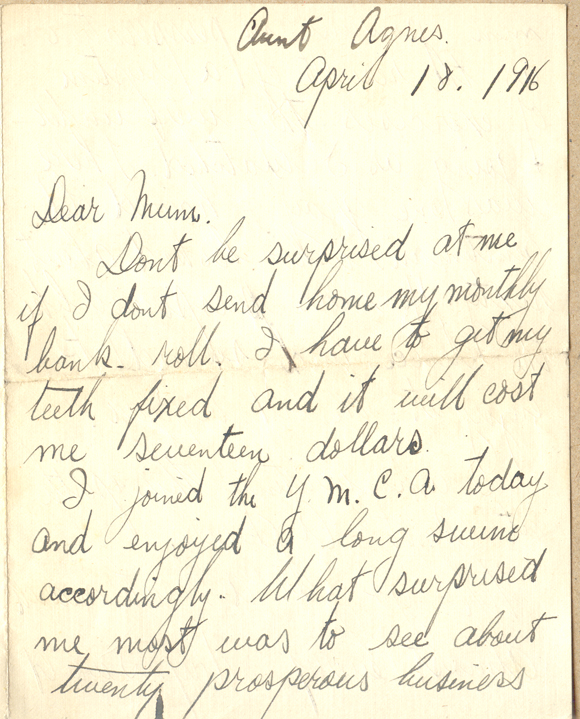 Aunt Agnes.
April 18. 1916
Dear Mum.
Dont be surprised at me
if I dont send home my monthly
bank-roll. I have to get my
teeth fixed and it will cost
me seventeen dollars.
I joined the Y.M.C.A. today
and enjoyed a long swim
accordingly. What surprised
me most was to see about
twenty prosperous business